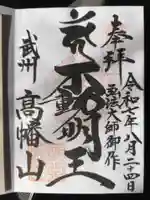 奉拝
令和六年八月二十四日
弘法大師御作
不動明王
武州
高幡山